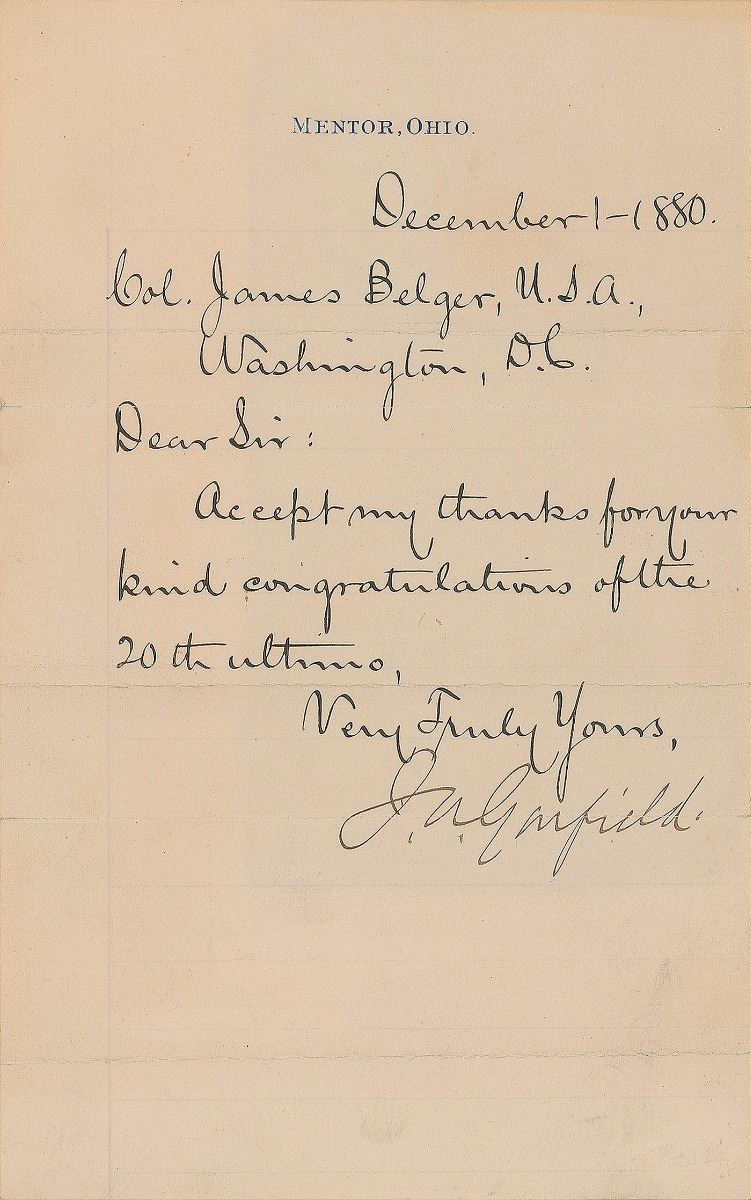 MENTOR, OHIO.
December 1-1880.
Col. James Belger, U.S.A.,
Washington, D.C.
Dear Sir:
Accept my thanks for your
kind congratulations of the
20th ultimo,
Very Truly Yours,
J. A. Garfield.